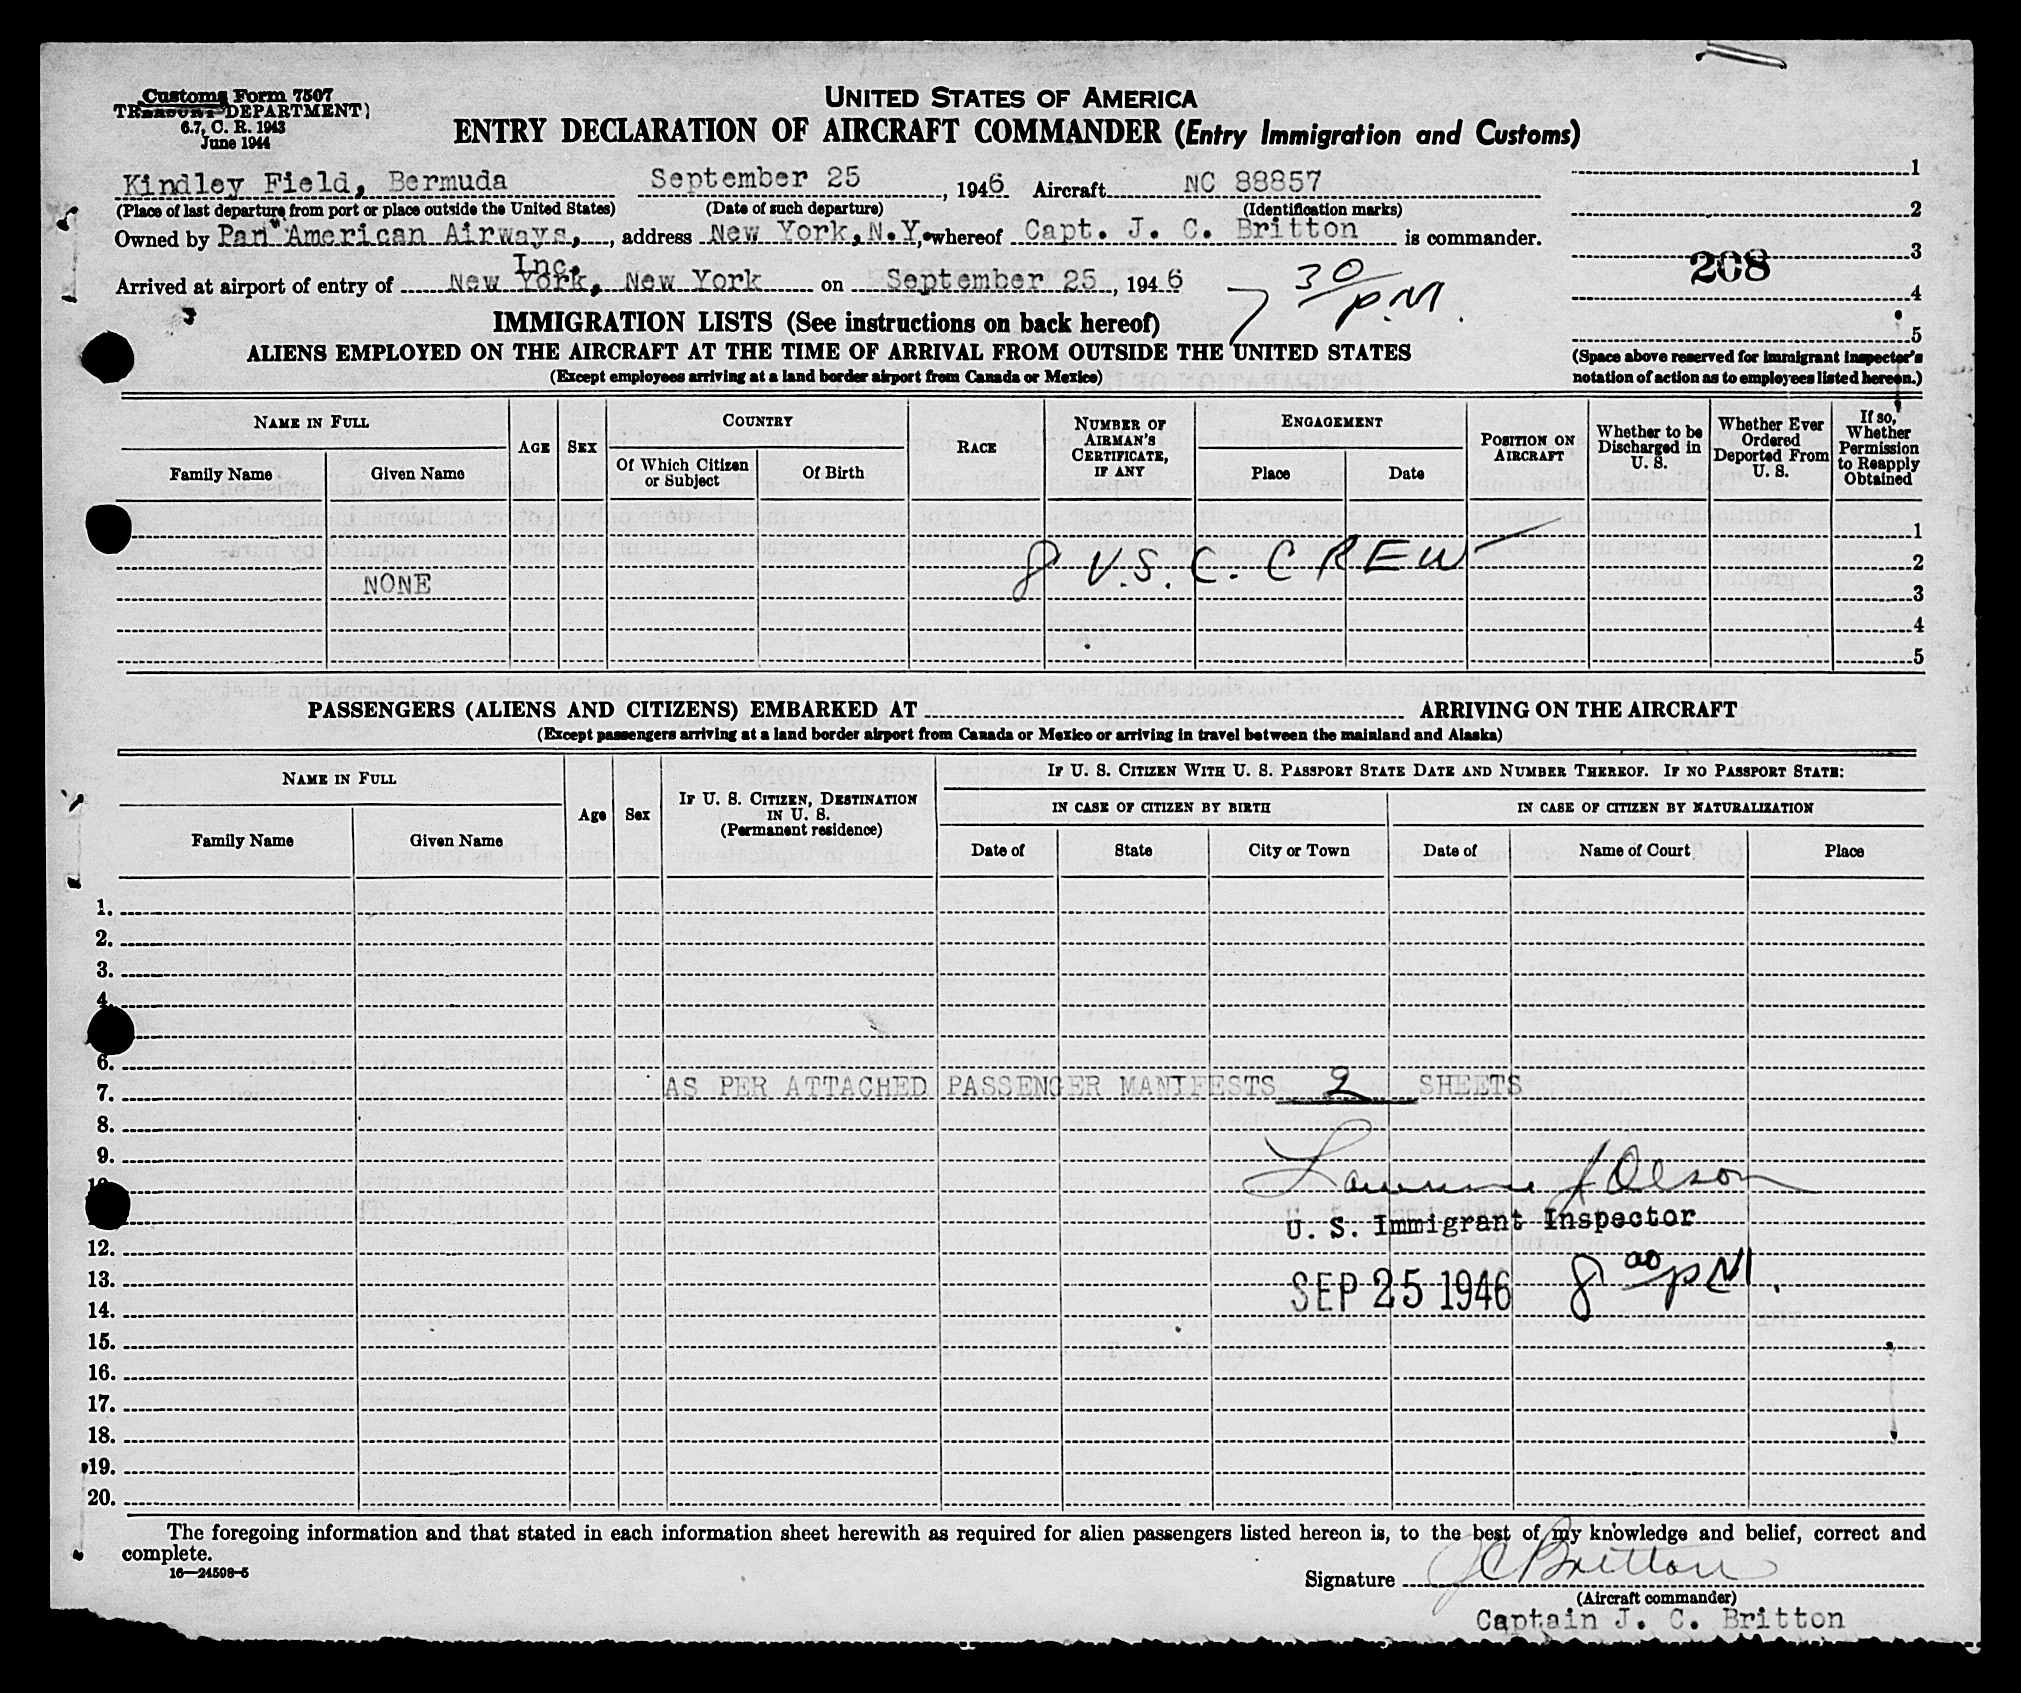 Customs Form 7507
TREASURY DEPARTMENT
6.7, C. R. 1943
June 1944
UNITED STATES OF AMERICA
ENTRY DECLARATION OF AIRCRAFT COMMANDER (Entry Immigration and Customs)
Kindley Field, Bermuda September 25, 1946 Aircraft NC 88857
(Place of last departure from port or place outside the United States) (Date of such departure) (Identification marks)
Owned by Pan American Airways, Inc., address New York, N.Y., whereof Capt. J. C. Britton is commander.
Arrived at airport of entry of New York, New York on September 25, 1946 7 30/P.M.
1
2
3
208
4
5
(Space above reserved for immigrant inspector's
notation of action as to employees listed hereon.)
IMMIGRATION LISTS (See instructions on back hereof)
ALIENS EMPLOYED ON THE AIRCRAFT AT THE TIME OF ARRIVAL FROM OUTSIDE THE UNITED STATES
(Except employees arriving at a land border airport from Canada or Mexico)
NAME IN FULL
Family Name Given Name
AGE SEX
COUNTRY
Of Which Citizen or Subject Of Birth
RACE
NUMBER OF AIRMAN'S CERTIFICATE, IF ANY
ENGAGEMENT
Place Date
POSITION ON AIRCRAFT
Whether to be Discharged in U. S.
Whether Ever Ordered Deported From U. S.
If so, Whether Permission to Reapply Obtained
1
8 U.S.C. CREW 2
NONE 3
4
5
PASSENGERS (ALIENS AND CITIZENS) EMBARKED AT ARRIVING ON THE AIRCRAFT
(Except passengers arriving at a land border airport from Canada or Mexico or arriving in travel between the mainland and Alaska)
NAME IN FULL
Family Name Given Name
Age Sex
IF U. S. CITIZEN, DESTINATION IN U. S. (Permanent residence)
IF U. S. CITIZEN WITH U. S. PASSPORT STATE DATE AND NUMBER THEREOF. IF NO PASSPORT STATE:
IN CASE OF CITIZEN BY BIRTH IN CASE OF CITIZEN BY NATURALIZATION
Date of State City or Town Date of Name of Court Place
1.
2.
3.
4.
6.
7. AS PER ATTACHED PASSENGER MANIFESTS 2 SHEETS
8.
9.
10. Lawrence J Olson
U. S. Immigrant Inspector
12.
13. SEP 25 1946 8 00/PM.
14.
15.
16.
17.
18.
19.
20.
The foregoing information and that stated in each information sheet herewith as required for alien passengers listed hereon is, to the best of my knowledge and belief, correct and
complete.
16—24598-5
Signature J C Britton
(Aircraft commander)
Captain J. C. Britton